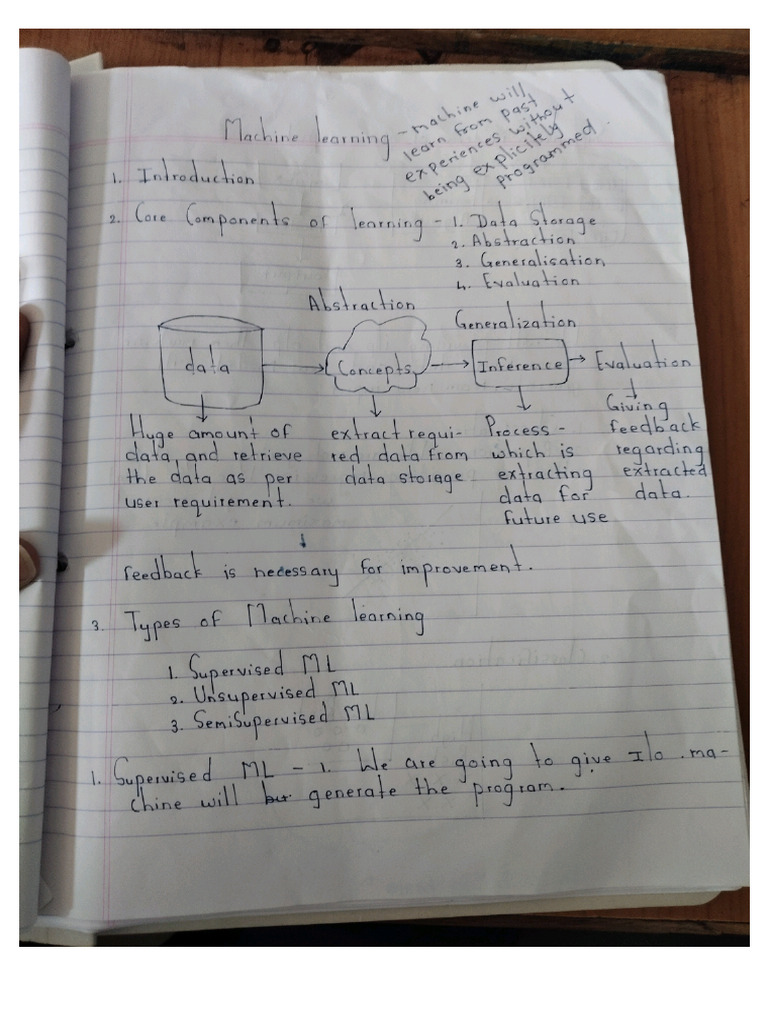 Machine learning - machine will
learn from past
experiences without
being explicitely
programmed.
1. Introduction
2. Core Components of learning - 1. Data Storage
2. Abstraction
3. Generalisation
4. Evaluation
Abstraction
Generalization
data
Concepts
Inference
Evaluation
Huge amount of
data, and retrieve
the data as per
user requirement.
extract requi-
red data from
data storage
Process -
which is
extracting
data for
future use
Giving
feedback
regarding
extracted
data.
feedback is necessary for improvement.
3. Types of Machine learning
1. Supervised ML
2. Unsupervised ML
3. SemiSupervised ML
1. Supervised ML - 1. We are going to give I/o. ma-
chine will generate the program.